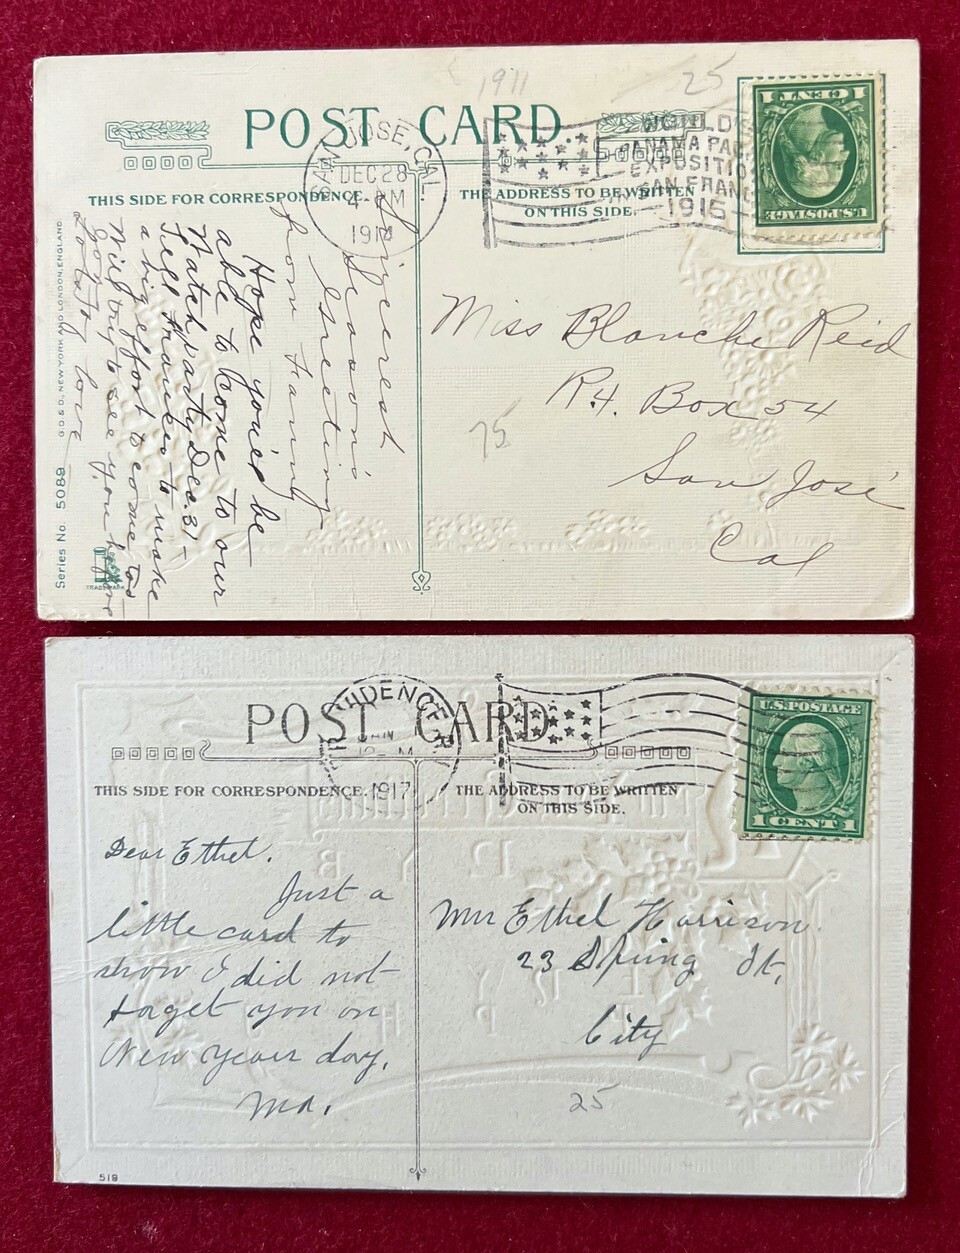 1911
25
POST CARD
SAN JOSE, CAL.
DEC 28
4 - M
191
WORLD'S
PANAMA PAC
EXPOSITIO
SAN FRANC
1915
1 CENT 1
U.S. POSTAGE
THIS SIDE FOR CORRESPONDENCE.
THE ADDRESS TO BE WRITTEN
ON THIS SIDE.
Sincerest
Season's
Greeting
from Family
Hope you'll be
able to come to our
Watch Party Dec. 31-
Tell to make
a big effort to come too
Will try to see you before
Lots of love
G.D. & D., NEW YORK AND LONDON, ENGLAND.
Series No. 5089
TRADE MARK
Miss Blanche Reid
R.4. Box 54
San José
Cal
75
POST CARD
PROVIDENCE R.I.
JAN
12 - M
1917
U.S. POSTAGE
1 CENT 1
THIS SIDE FOR CORRESPONDENCE.
THE ADDRESS TO BE WRITTEN
ON THIS SIDE.
Dear Ethel.
Just a
little card to
show I did not
forget you on
New Years day.
Ma.
Ethel Harrison
23 Spring St,
City
25
518